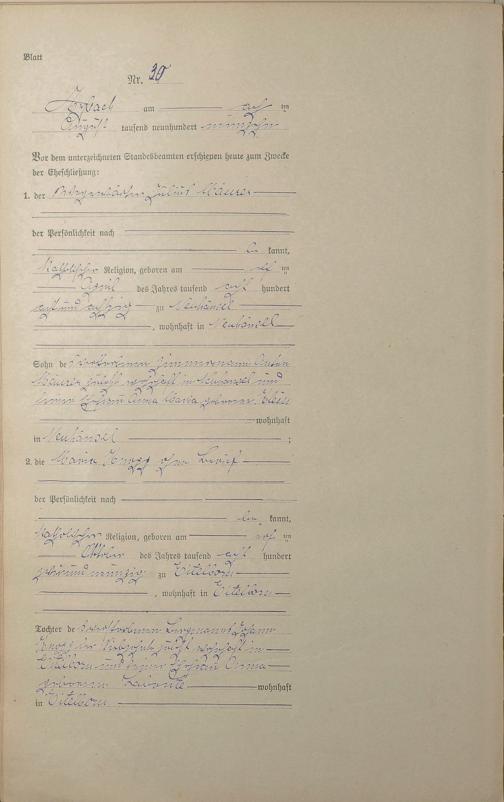 Blatt
Nr. 30
Arzbach am
August tausend neunhundert neunzehn
Vor dem unterzeichneten Standesbeamten erschienen heute zum Zwecke
der Eheschließung:
1. der Julius Mäurer
der Persönlichkeit nach
kannt,
katholischer Religion, geboren am
April des Jahres tausend acht hundert
acht und achtzig zu Neuhäusel
, wohnhaft in Neuhäusel
Sohn des verstorbenen Zimmermanns Anton
Mäurer zuletzt wohnhaft in Neuhäusel und
seiner Ehefrau Anna Maria geborene
wohnhaft
in Neuhäusel ;
2. die Maria Knopp ohne Beruf
der Persönlichkeit nach
be kannt,
katholischer Religion, geboren am
Oktober des Jahres tausend acht hundert
zwei und neunzig zu Eitelborn
, wohnhaft in Eitelborn
Tochter des verstorbenen Bergmanns Johann
Knopp zuletzt wohnhaft in
Eitelborn und seiner Ehefrau Anna
geborene wohnhaft
in Eitelborn